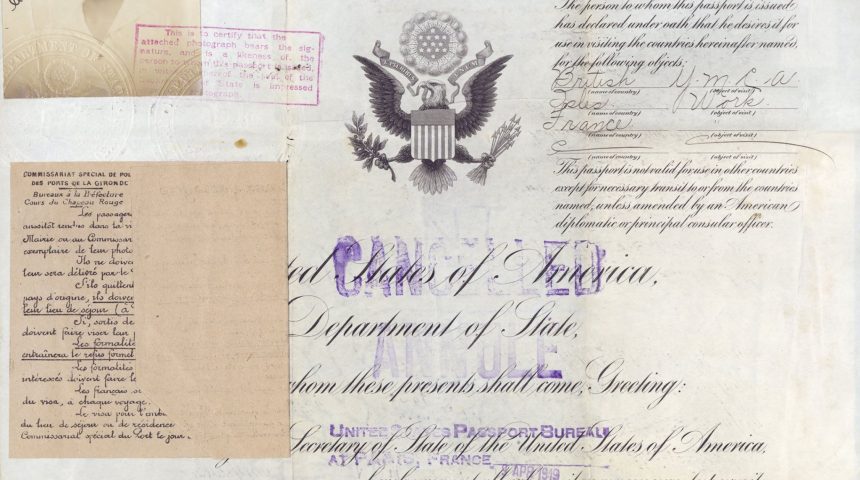 This is to certify that the
attached photograph bears the sig-
nature, and is a likeness of the
person to whom this passport is issued,
of the seal of the
of State is impressed
photograph.
The person to whom this passport is issued
has declared under oath that he desires it for
use in visiting the countries hereinafter named,
for the following objects:
British Y.M.C.A.
(name of country) (object of visit)
Isles Work.
(name of country) (object of visit)
France
(name of country) (object of visit)
This passport is not valid for use in other countries
except for necessary transit to or from the countries
named, unless amended by an American
diplomatic or principal consular officer.
COMMISSARIAT SPECIAL DE POL
DES PORTS DE LA GIRONDE
Bureaux à la Préfecture
Cours du Chapeau Rouge
Les passager
aussitôt rendus dans la vi
Mairie ou au Commissar
exemplaire de leur photo
Ils ne doive
leur sera délivré par le
S'ils quittent
pays d'origine, ils doive
leur lieu de séjour (à
Si, sortis de
doivent faire viser leur
Les formalité
entraînera le refus formel
Les formalités
intéressés doivent faire le
Les français
du visa, à chaque voyage.
Le visa pour l'emb
du lieu de séjour ou de résidence
Commissariat spécial du Port le jour
CANCELLED
ted States of America,
Department of State,
ANNULE
whom these presents shall come, Greeting:
UNITED STATES PASSPORT BUREAU
Secretary of State of the United States of America,
AT PARIS, FRANCE
APR 1919